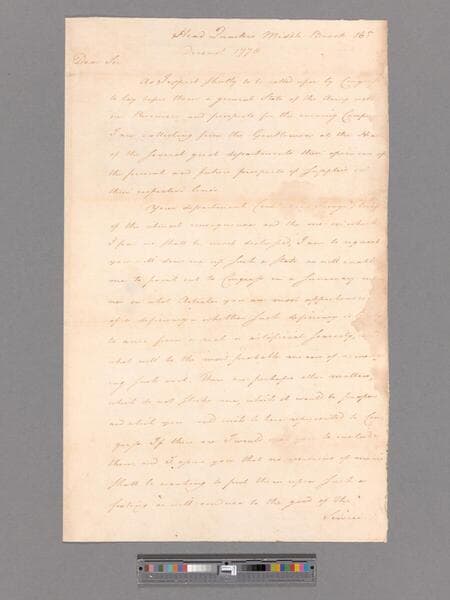 Head Quarters Middle Brook 16th
Decemr 1778
Dear Sir
As I expect shortly to be called upon by Congress
to lay before them a general State of the Army with
our and prospects for the ensuing Camp
I am collecting from the Gentlemen at the Head
of the several great departments their opinions of
the present and future prospects of Supplies in
their respective lines
Your department
of the utmost consequence and the one in which
I fear we shall be most distressed, I am to request
you will draw me up such a State as will enable
me to point out to Congress in a Summary
in what Articles you are most apprehensive
of a deficiency whether such deficiency is
to arise from a real or artificial Scarcity,
what will be the most probable means of
ing such want. There are perhaps other matters
which do not strike me, which it would be proper
and which you wish to have represented to Con
gress If there are I would you to include
them and I assure you that no of mine
shall be wanting to put them upon such a
footing as will conduce to the good of the
Service